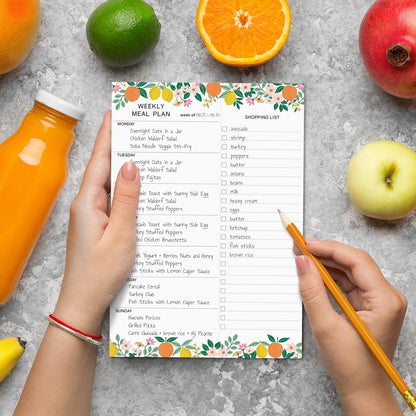 WEEKLY
MEAL PLAN
week of
SHOPPING LIST
MONDAY
Overnight Oats in a Jar
Chicken Waldorf Salad
Soba Noodle Veggie Stir-Fry
TUESDAY
Overnight Oats in a Jar
Chicken Waldorf Salad
Fajitas
Toast with Sunny Side Egg
Waldorf Salad
Stuffed Peppers
Toast with Sunny Side Egg
Stuffed Peppers
Chicken Bruschetta
Yogurt + Berries and Honey
Stuffed Peppers
Fish Sticks with Lemon Caper Sauce
SATURDAY
Pancake Cereal
Turkey Club
Fish Sticks with Lemon Caper Sauce
SUNDAY
Huevos Pericos
Grilled Pizza
Carne Guisada + brown rice + Aji Picante
avocado
shrimp
turkey
peppers
butter
onions
beans
milk
heavy cream
eggs
butter
ketchup
tomatoes
fish sticks
brown rice